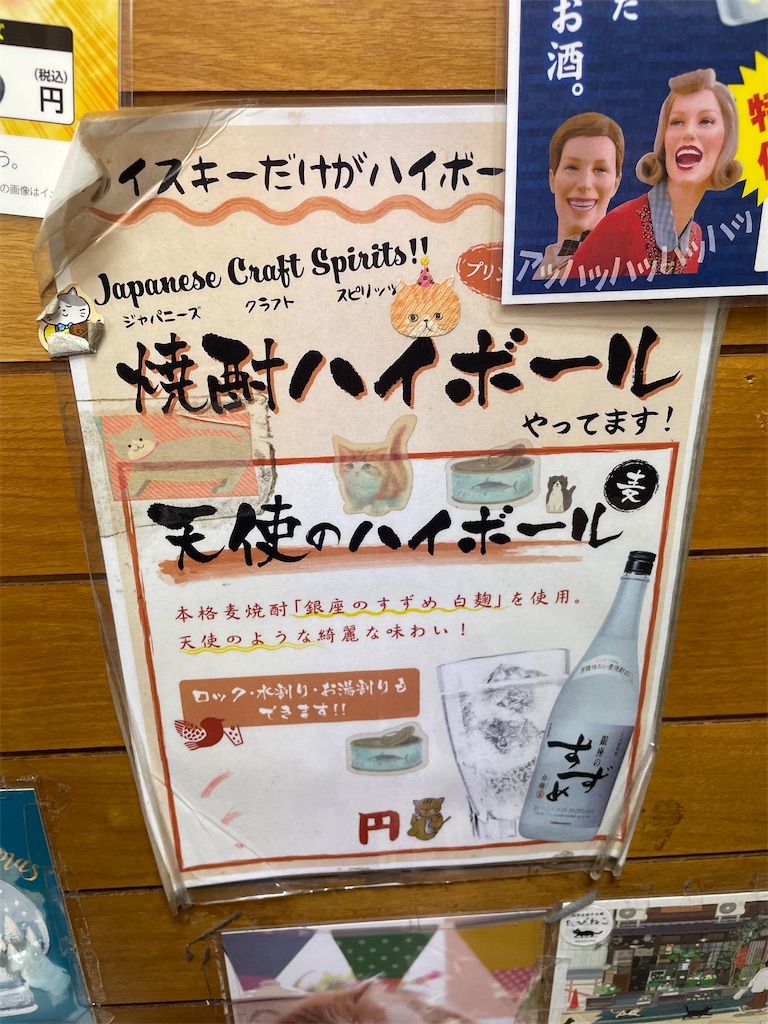 (税込)
円
う。
の画像はイ
た
お酒。
特
アッハッハッハッハッ
イスキーだけがハイボー
Japanese Craft Spirits!!
ジャパニーズ クラフト スピリッツ
プリン
焼酎ハイボール
やってます!
麦
天使のハイボール
本格麦焼酎「銀座のすずめ 白麹」を使用。
天使のような綺麗な味わい!
ロック・水割り・お湯割りも
できます!!
円
銀座の
すずめ
白麹